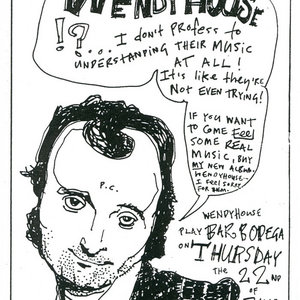 WENDYHOUSE
!?... I don't profess to
UNDERSTANDING THEIR MUSIC
AT ALL!
It's like they're
NOT EVEN TRYING!
IF YOU WANT
TO COME FEEL
SOME REAL
MUSIC, BUY
MY NEW ALBUM.
WENDYHOUSE -
I FEEL SORRY
FOR THEM.
P.C.
WENDYHOUSE
PLAY BAR BODEGA
ON THURSDAY
THE 22ND
OF